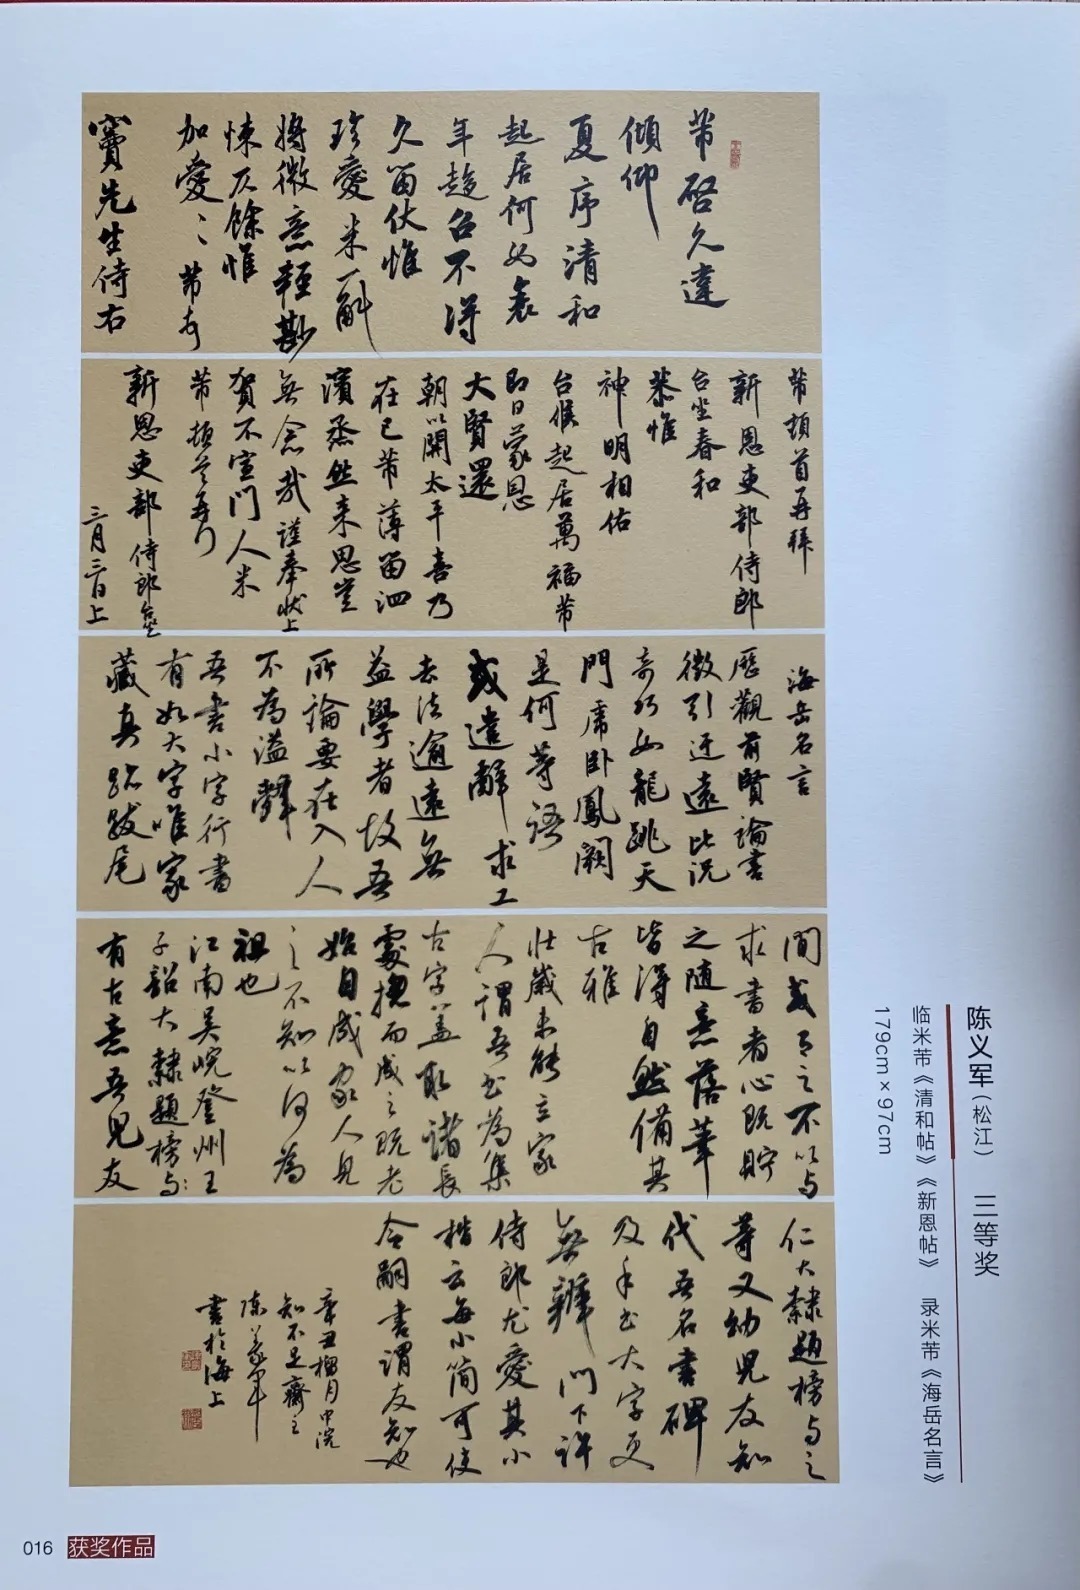 芾啓久違
傾仰
夏序清和
起居何如衰
年趋召不得
久留伏惟
珍愛米一斛
將微意輕尠
悚仄餘惟
加愛〻芾頓首
竇先生侍右
芾頓首再拜
新恩吏部侍郎
台坐春和
恭惟
神明相佑
台候起居萬福芾
即日蒙恩
大賢還
朝以開太平喜乃
在己芾薄留泗
濱烝然来思豈
無念哉謹奉狀上
賀不宣門人米
芾頓首再拜
新恩吏部侍郎台坐
三月三日上
海岳名言
歷觀前賢論書
徵引迂遠比況
奇巧如龍跳天
門虎卧鳳闕
是何等語
或遣辭求工
去法逾遠無
益學者故吾
所論要在入人
不為溢辭
吾書小字行書
有如大字唯家
藏真跡跋尾
間或有之不以与
求書者心既貯
之随意落筆
皆得自然備其
古雅
壯歲未能立家
人謂吾書為集
古字盖取諸長
處揔而成之既老
始自成家人見
之不知以何為
祖也
江南吴皖登州王
子韶大隸題榜与
有古意吾兒友
仁大隸題榜与之
等又幼兒友知
代吾名書碑
及手書大字更
無辨門下許
侍郎尤愛其小
楷云每小简可使
令嗣書謂友知也
辛丑榴月中浣
知不足齋主
陈義军
書於海上
陈义军（松江） 三等奖
临米芾《清和帖》《新恩帖》 录米芾《海岳名言》
179cm×97cm
016 获奖作品